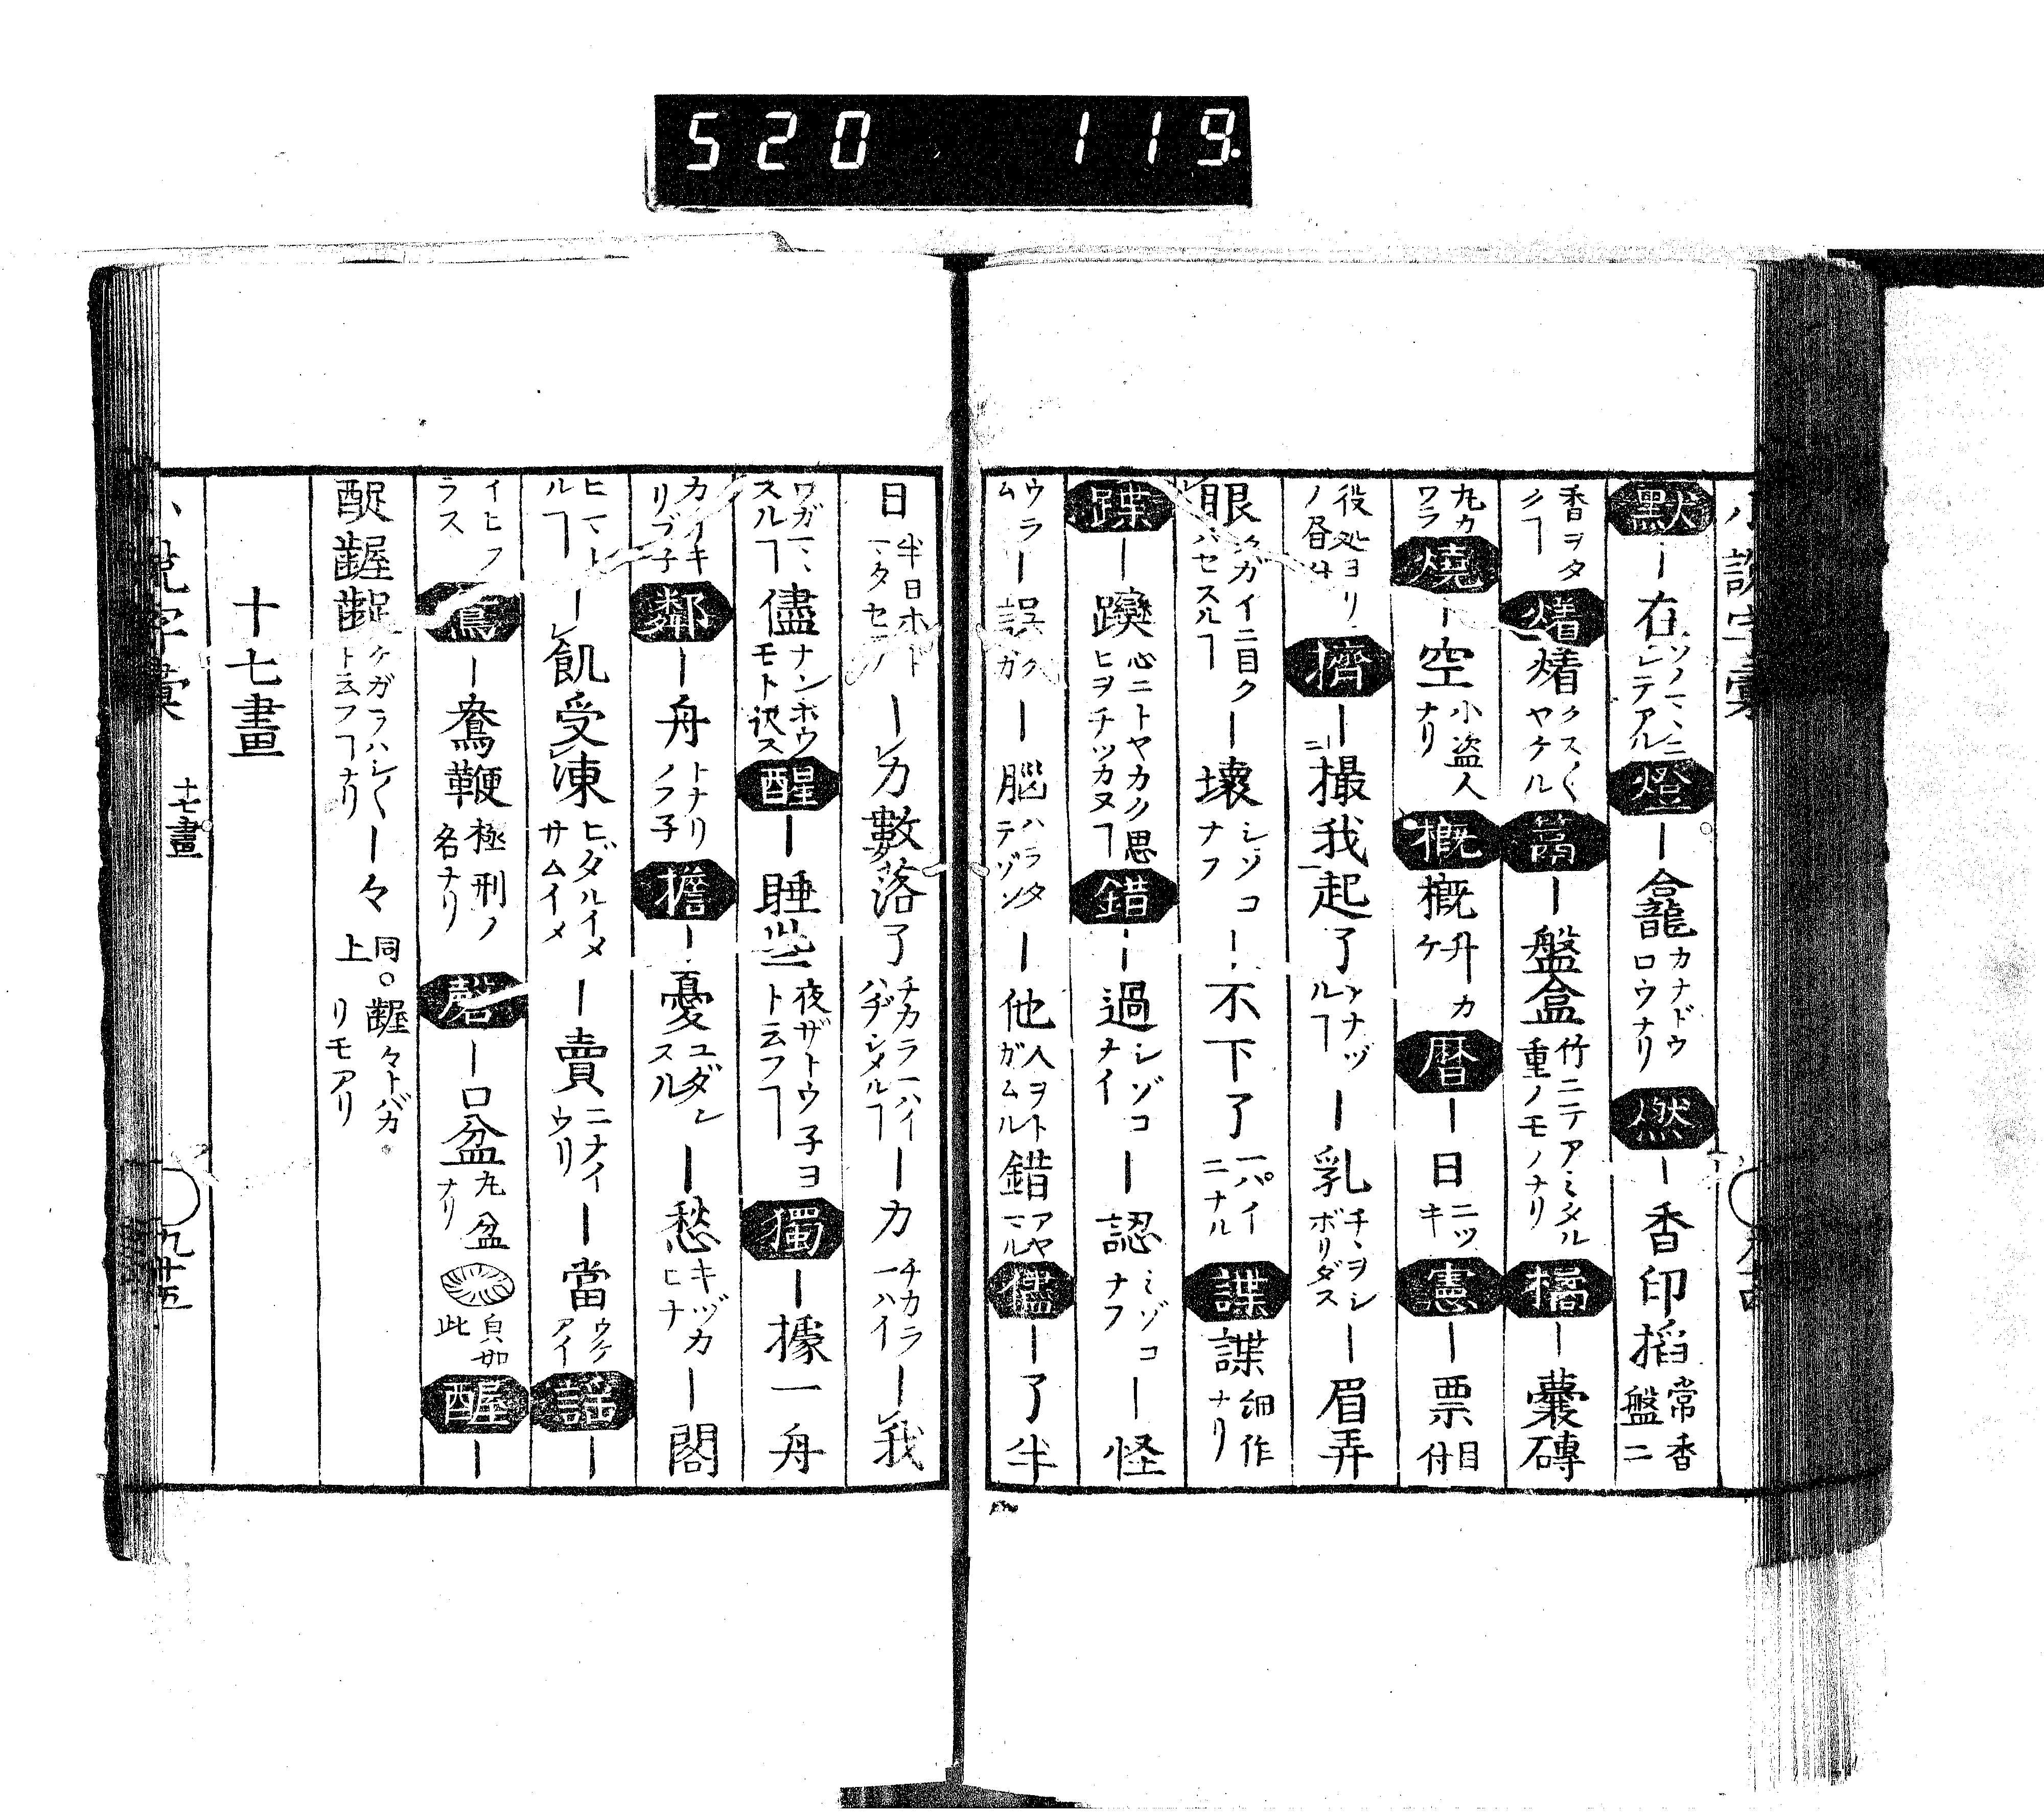 520 119.
默｜在ソノマヽニシテアル燈｜盒龕カナドウロウナリ燃｜香印搯常香盤ニ
香ヲタクヿ㷶㷶クス〳〵ヤケル篙｜盤盒竹ニテアミタル重ノモノナリ橘｜嚢磚
九カワラ燒｜空小盗人ナリ概概升カケ曆｜日ニツキ憲｜票目付
役処ヨリノ昼丗擠｜撮我起了ツナヅルヿ｜乳チヽヲシボリダス｜眉弄
眼メガイニ目クバセスルヿ｜壞シゾコナフ｜不下了一パイニナル諜諜細作ナリ
蹀｜躞心ニトヤカク思ヒヲチツカヌヿ錯｜過シゾコナイ｜認ミゾコナフ｜怪
ウラム｜誤｜腦ハラタテゾン｜他人ヲトガムル錯アヤマル儘｜了半
日半日ホドマタセタ｜力數落了チカラ一ハイハヂシメルヿ｜力チカラ一ハイ｜我
ワガマヽスルヿ儘ナンホウモト訳ス醒｜睡些夜ザトウ子ヨト云フヿ獨｜據一舟
カイキリブ子鄰｜舟トナリノフ子擔｜憂ユダンスル｜愁キヅカヒナ｜閣
ヒマトルヿ｜飢受凍ヒダルイメサムイメ｜賣ニナイウリ｜當ウケアイ謡｜
イヒフラス鴛｜鴦鞭極刑ノ名ナリ磨｜口盆丸盆ナリ貟如此醒｜
齪齷齪ケガラハシ〳〵ト云フヿナリ｜々同上○齷々トバカリモアリ
十七畫
小説字彙 十七畫 九十五